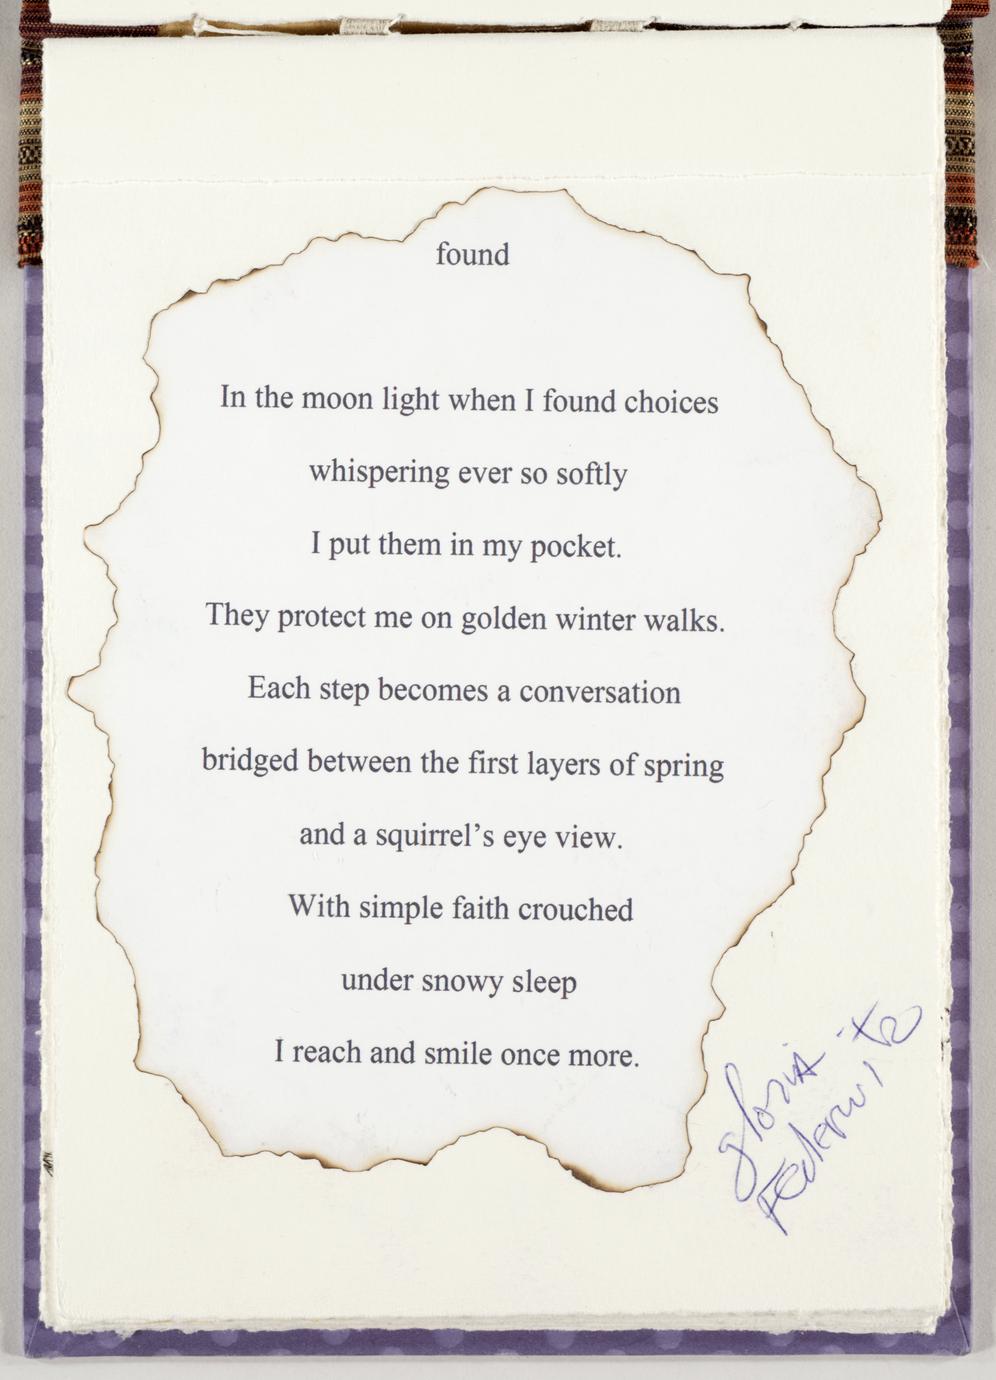 found
In the moon light when I found choices
whispering ever so softly
I put them in my pocket.
They protect me on golden winter walks.
Each step becomes a conversation
bridged between the first layers of spring
and a squirrel’s eye view.
With simple faith crouched
under snowy sleep
I reach and smile once more.
gloria